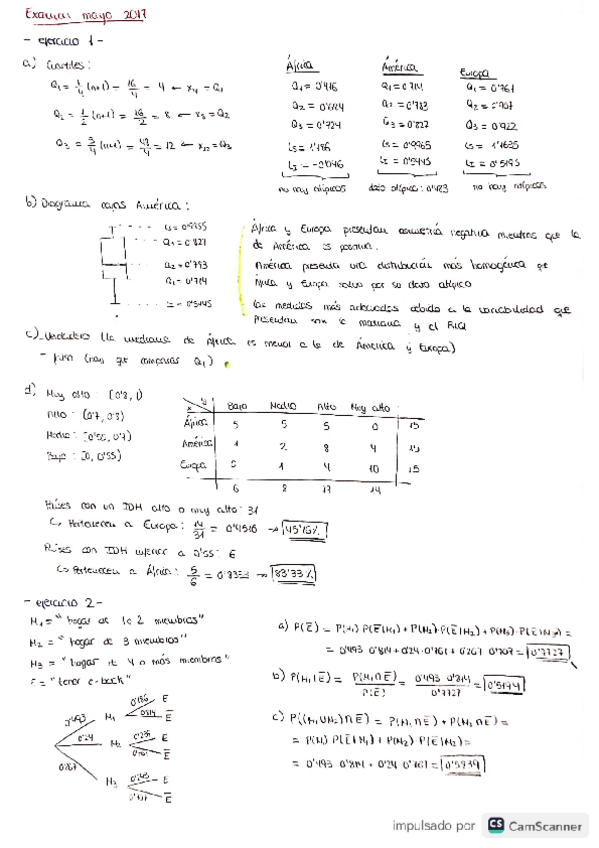 Examen mayo 2017
- ejercicio 1 -
a) Cuartiles:
Q₁ = 1/4 (n+1) = 16/4 = 4 ← x₄ = Q₁
Q₂ = 1/2 (n+1) = 16/2 = 8 ← x₈ = Q₂
Q₃ = 3/4 (n+1) = /4 = 12 ← x₁₂ = Q₃
África América Europa
Q₁ = 0'416 Q₁ = 0'714 Q₁ = 0'761
Q₂ = Q₂ = 0'783 Q₂ =
Q₃ = 0'724 Q₃ = 0'827 Q₃ = 0'922
Ls = 1'186 Ls = 0'9965 Ls = 1'1635
LI = -0'046 LI = 0'5445 LI = 0'5195
no hay atípicos dato atípico: no hay atípicos
b) Diagrama cajas América:
Ls =
Q₃ = 0'827
Q₂ = 0'793
Q₁ = 0'714
= 0'5445
África y Europa presentan asimetría negativa mientras que la
de América es positiva.
América presenta una distribución más homogénea que
África y Europa salvo por su dato atípico
Las medidas más adecuadas debido a la variabilidad que
presentan son la mediana y el RIQ
c) Verdadero (la mediana de África es menor a la de América y Europa)
- Falso (hay que comparar Q₁)
d) Muy alto: [0'8, 1)
Alto: [0'7, 0'8)
Medio: [0'55, 0'7)
Bajo: [0, 0'55)
x y Bajo Medio Alto Muy alto
África 5 5 5 0 15
América 1 2 8 4 15
Europa 0 1 4 10 15
6 8 17 14
Países con un IDH alto o muy alto: 31
↳ Pertenecen a Europa: 14/31 = 0'4516 → 45'16%
Países con IDH inferior a 0'55: 6
↳ Pertenecen a África: 5/6 = → 83'33%
- ejercicio 2 -
M₁ = "hogar de 1 o 2 miembros"
M₂ = "hogar de 3 miembros"
M₃ = "hogar de 4 o más miembros"
E = "tener e-book"
0'493 M₁ 0'186 E
0'814 E̅
0'24 M₂ 0'239 E
0'761 E̅
0'267 M₃ E
E̅
a) P(E̅) = P(M₁)·P(E̅|M₁) + P(M₂)·P(E̅|M₂) + P(M₃)·P(E̅|M₃) =
= 0'493·0'814 + 0'24·0'761 + 0'267·0'707 = 0'7727
b) P(M₁|E̅) = P(M₁∩E̅)/P(E̅) = 0'493·0'814/0'7727 = 0'5194
c) P((M₁∪M₂)∩E̅) = P(M₁∩E̅) + P(M₂∩E̅) =
= P(M₁)·P(E̅|M₁) + P(M₂)·P(E̅|M₂) =
= 0'493·0'814 + 0'24·0'761 = 0'5839
impulsado por CS CamScanner